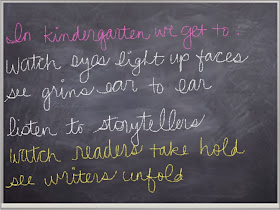 In kindergarten we get to:
watch eyes light up faces
see grins ear to ear
listen to storytellers
watch readers take hold
see writers unfold